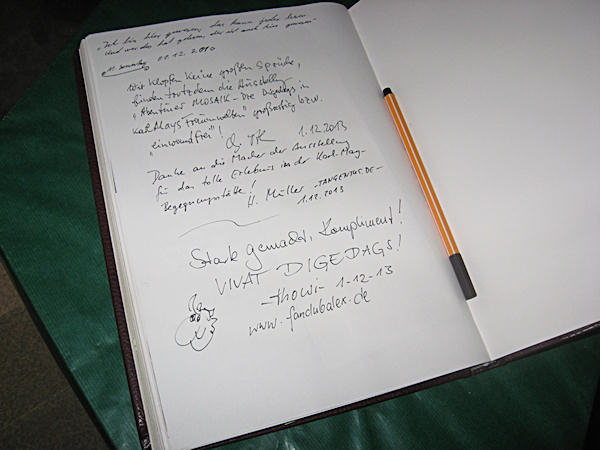 "Ich bin hier gewesen, das kann jeder lesen
und wer das hat gelesen, der ist auch hier gewesen"
01.12.2013
Wir klopfen keine großen Sprüche,
finden trotzdem die Ausstellung
"Abenteuer MOSAIK - Die Digedags in
Karl Mays Traumwelten" großartig bzw.
"einwandfrei"!
1.12.2013
Danke an die Macher der Ausstellung
für das tolle Erlebnis in der Karl-May-
Begegnungsstätte!
H. Müller -TANGENTUS.DE-
1.12.2013
Stark gemacht, Kompliment!
VIVAT DIGEDAGS!
-thowi- 1-12-13
www.fandubalex.de